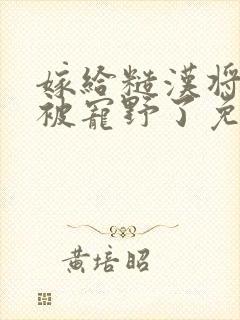 嫁給糙漢將
被寵野了免
黃培昭